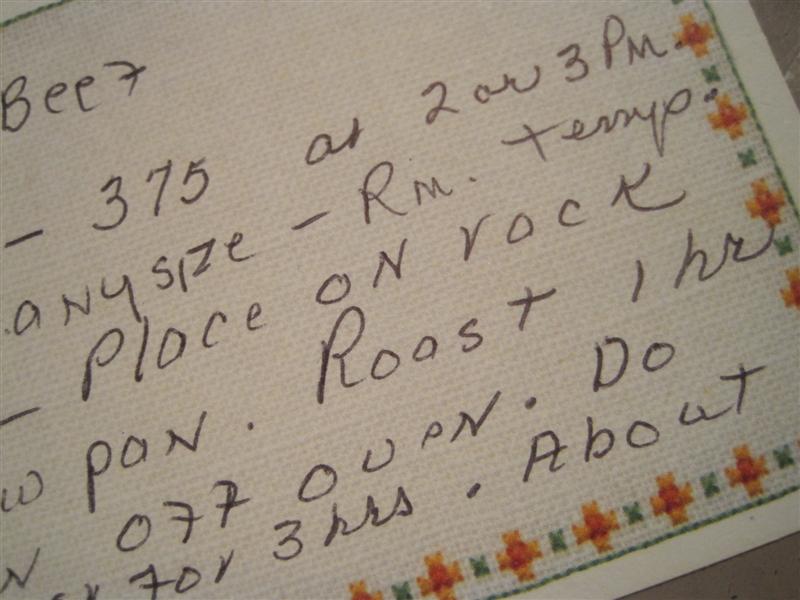 Beef
- 375 at 2 or 3 Pm.
anysize - Rm. temp.
- Place on rack
pan. Roast 1 hr
off oven. Do
for 3 hrs. About